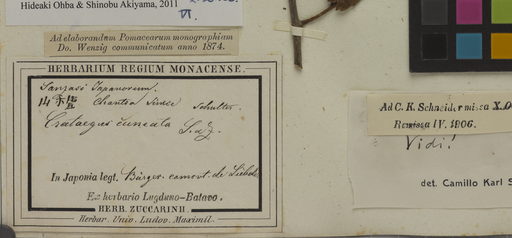 Hideaki Ohba & Shinobu Akiyama, 2011
Ad elaborandum Pomacearum monographiam
Do. Wenzig communicatum anno 1874.
HERBARIUM REGIUM MONACENSE.
Sansasi Japanorum.
Crataegus cuneata S. & Z.
In Japonia legt. Bürger. comort. de Siebold
Ex herbario Lugduno-Batavo.
HERB. ZUCCARINII.
Herbar. Univ. Ludov. Maximil.
Ad C. K. Schneider missa X.0
Remissa IV. 1906.
Vidi!
det. Camillo Karl S